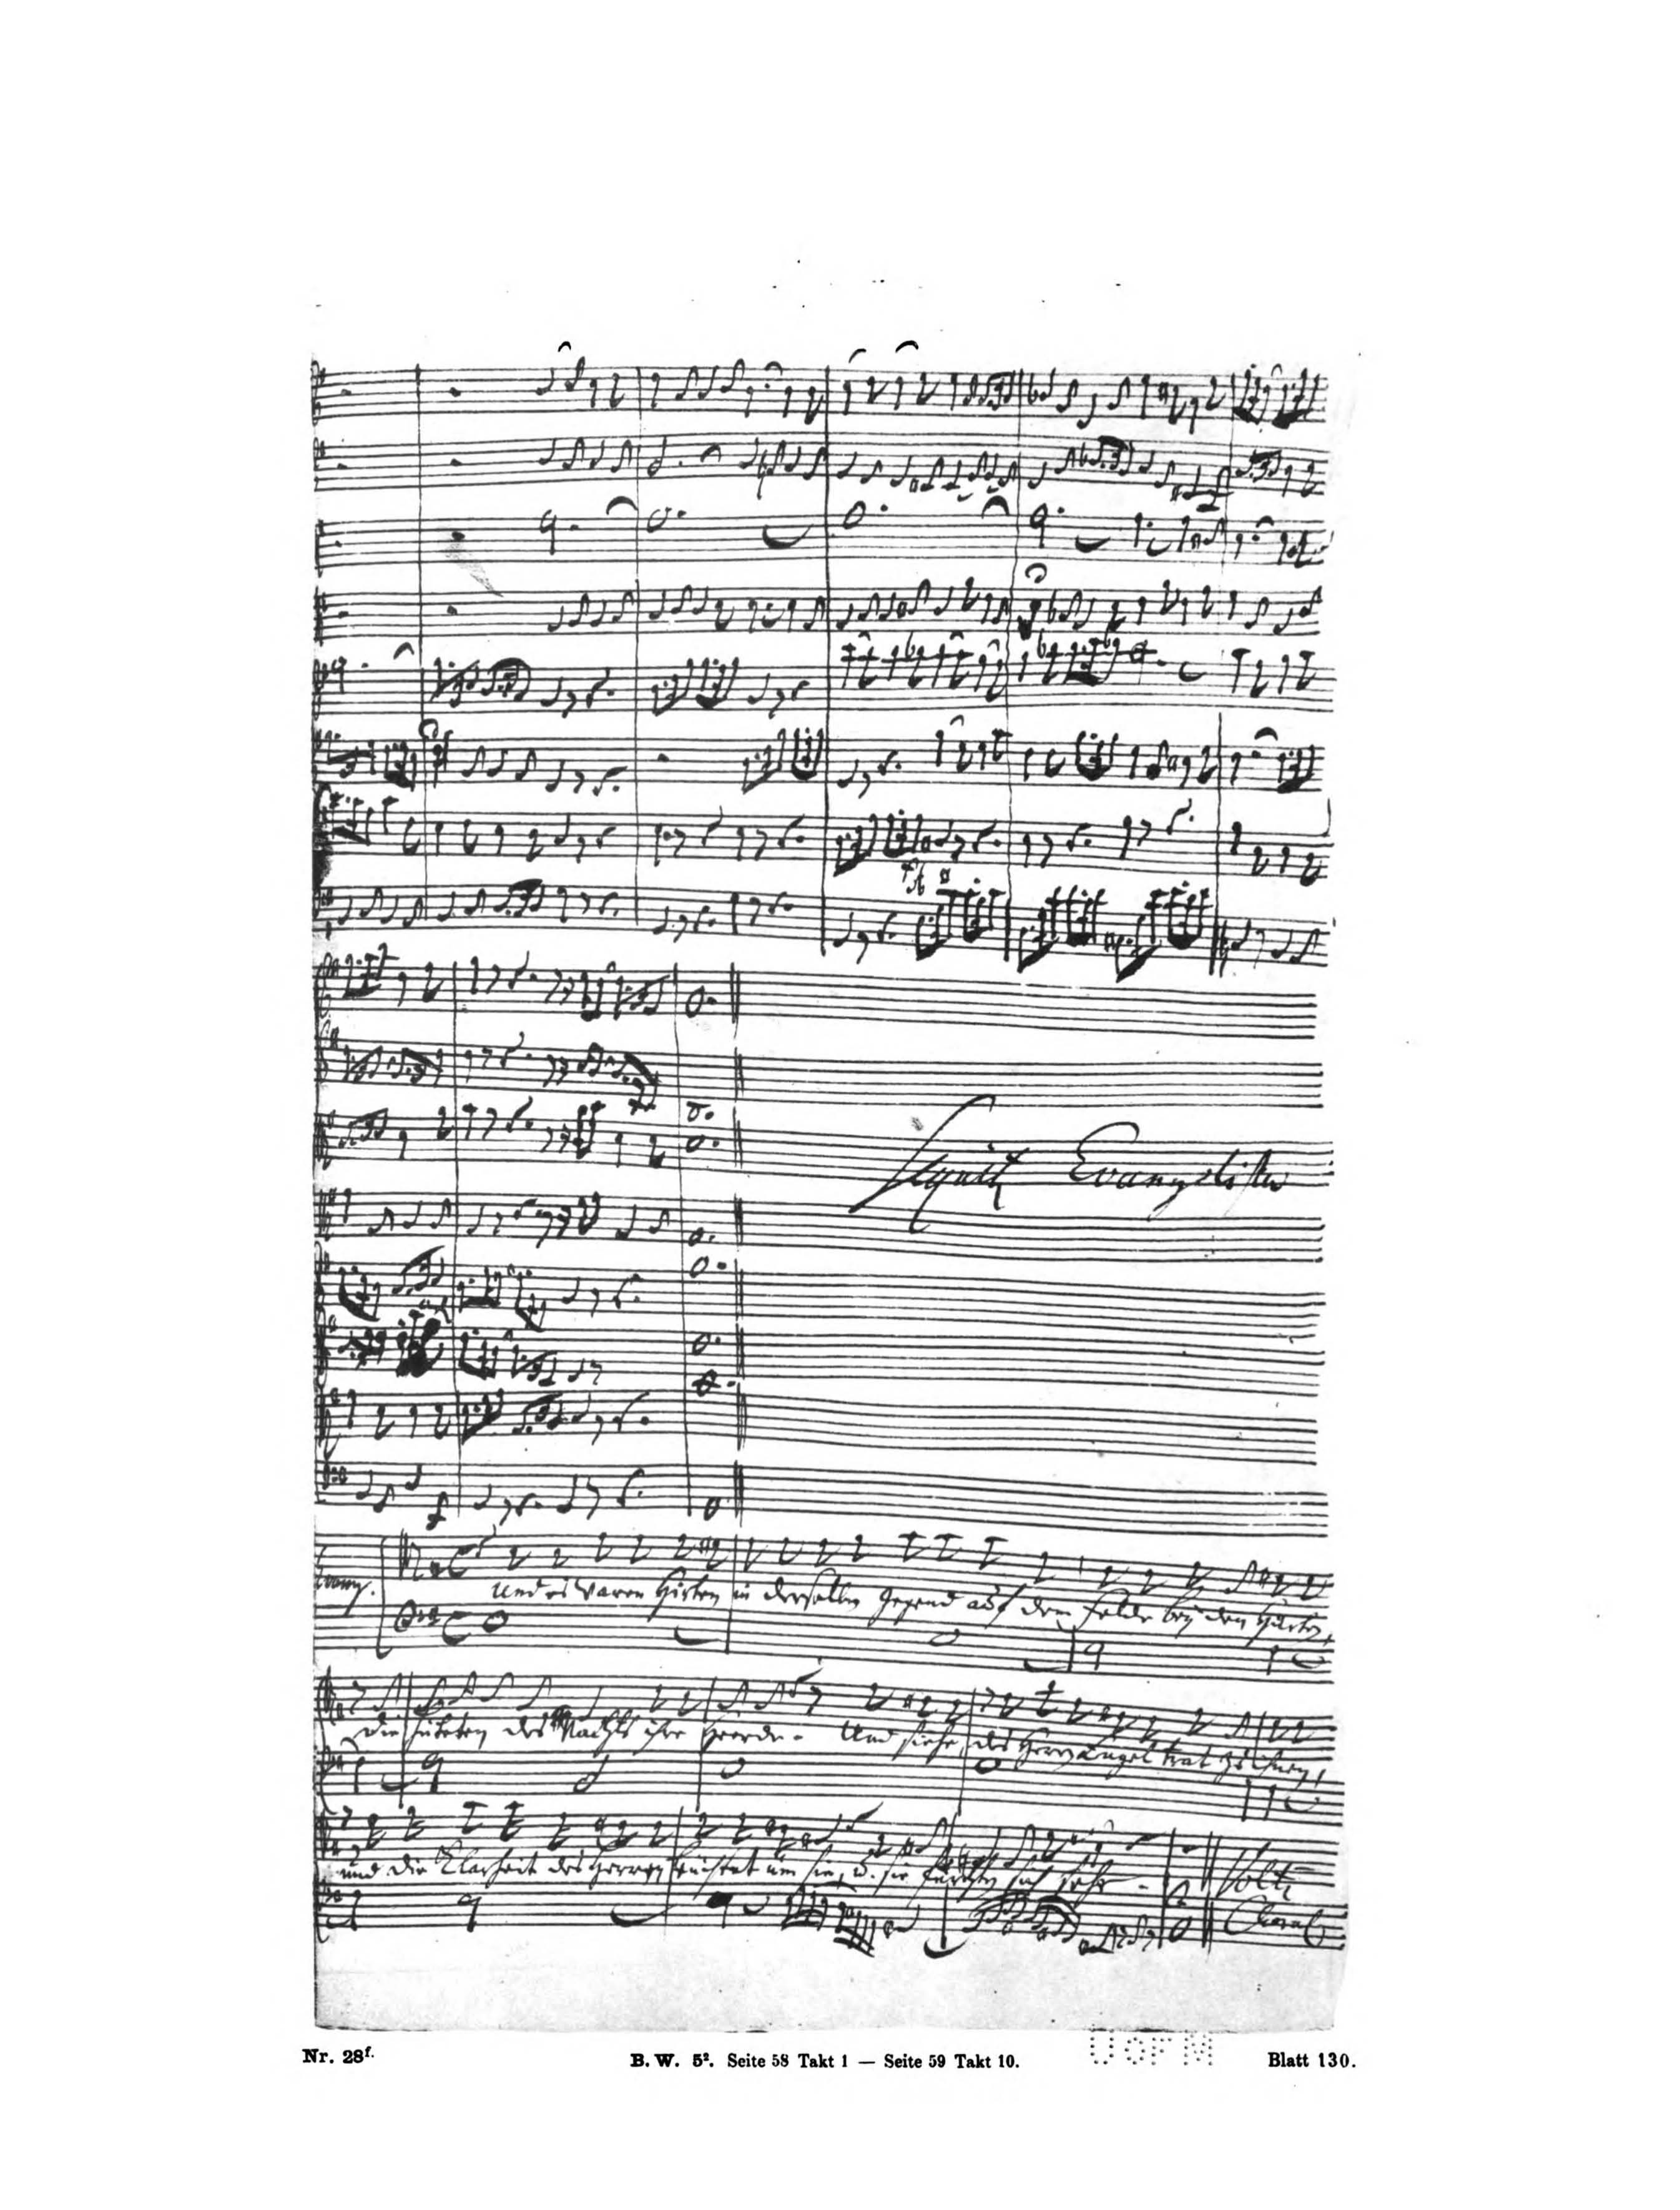 Sequit Evangelista
Evang.
Und es waren Hirten in derselben Gegend auf dem Felde bey den Hürden,
die hüteten des Nachts ihre Heerde. Und siehe, des Herren Engel trat zu ihnen,
und die Klarheit des Herren leuchtet um sie, u. sie furchten sich sehr.
Volti
Choral
Nr. 28f.
B. W. 5². Seite 58 Takt 1 — Seite 59 Takt 10.
U OF M
Blatt 130.